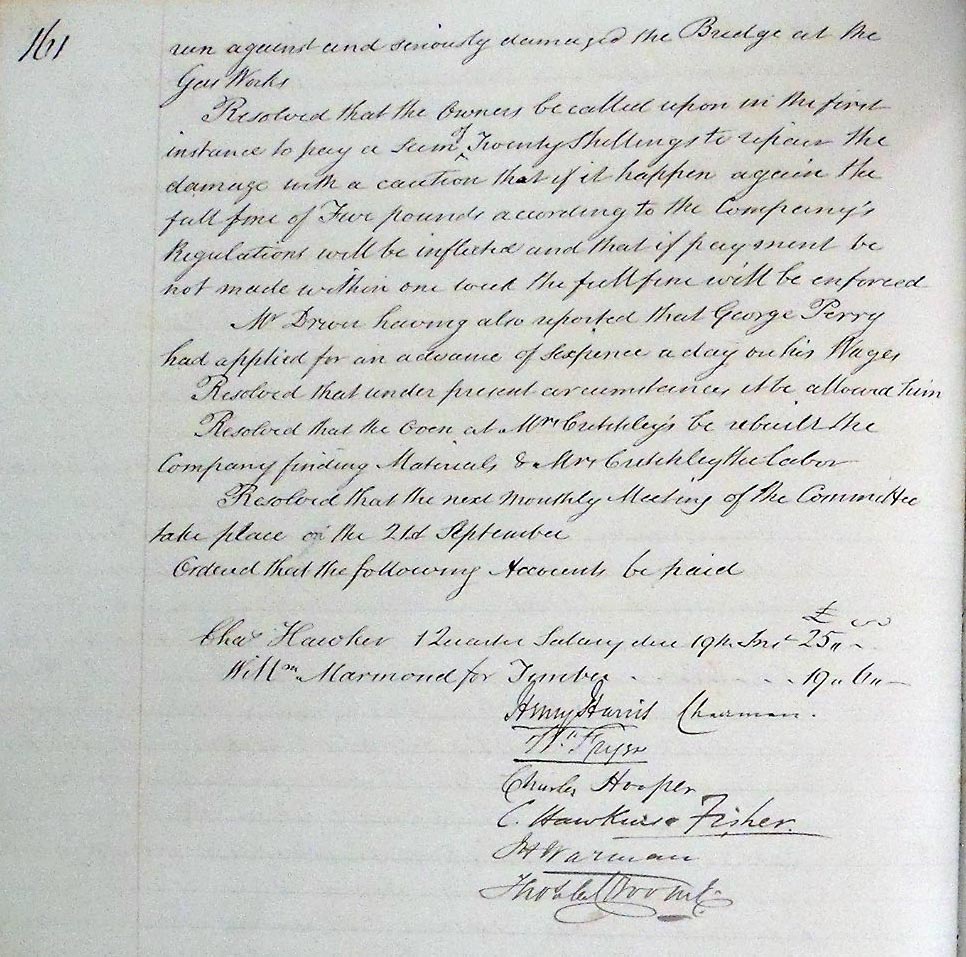 161
run against and seriously damaged the Bridge at the
Gas Works
Resolved that the Owners be called upon in the first
instance to pay a Sum of Twenty Shillings to repair the
damage with a caution that if it happen again the
full fine of Five pounds according to the Company's
Regulations will be inflicted and that if payment be
not made within one week the full fine will be enforced
Mr Driver having also reported that George Perry
had applied for an advance of Sixpence a day on his Wages
Resolved that under present circumstances it be allowed him
Resolved that the Oven at Mrs Critchley's be rebuilt the
Company finding Materials & Mrs Critchley the Labor
Resolved that the next Monthly Meeting of the Committee
take place on the 21st September
Ordered that the following Accounts be paid
£
Chas Hawker 1 Quarter Salary due 19th Inst 25 " -
Willm Marmond for Timber - - - 19 " 6 " -
Henry Harris Chairman.
Wm Fryer
Charles Hooper
C. Hawkins Fisher.
Warman
Thos